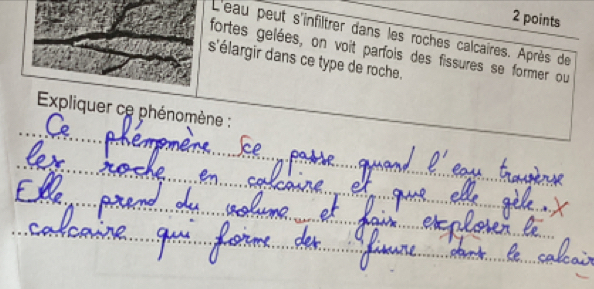 2 points
L'eau peut s'infiltrer dans les roches calcaires. Après de
fortes gelées, on voit parfois des fissures se former ou
s'élargir dans ce type de roche.
Expliquer ce phénomène :
Ce phénomène ce passe quand l'eau traverse
les roche en calcaire et que elle gèle.
Elle prend du volume et fais exploser le
calcaire qui forme des fissure dans le calcair